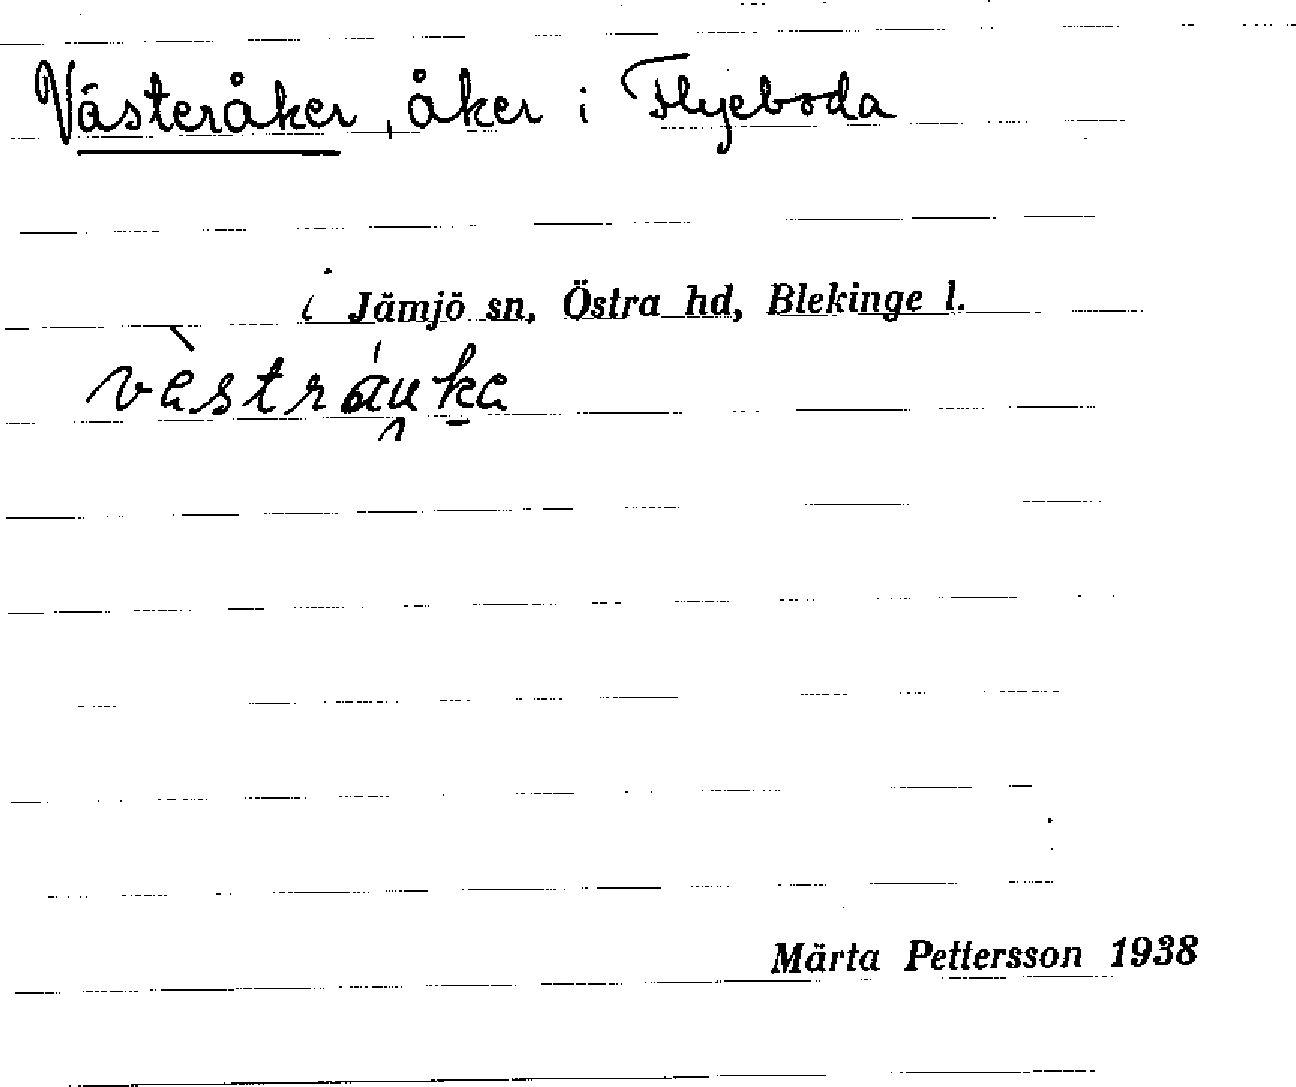 Västeråker, åker i Flyeboda
i Jämjö sn, Östra hd, Blekinge l.
västráuka
Märta Pettersson 1938